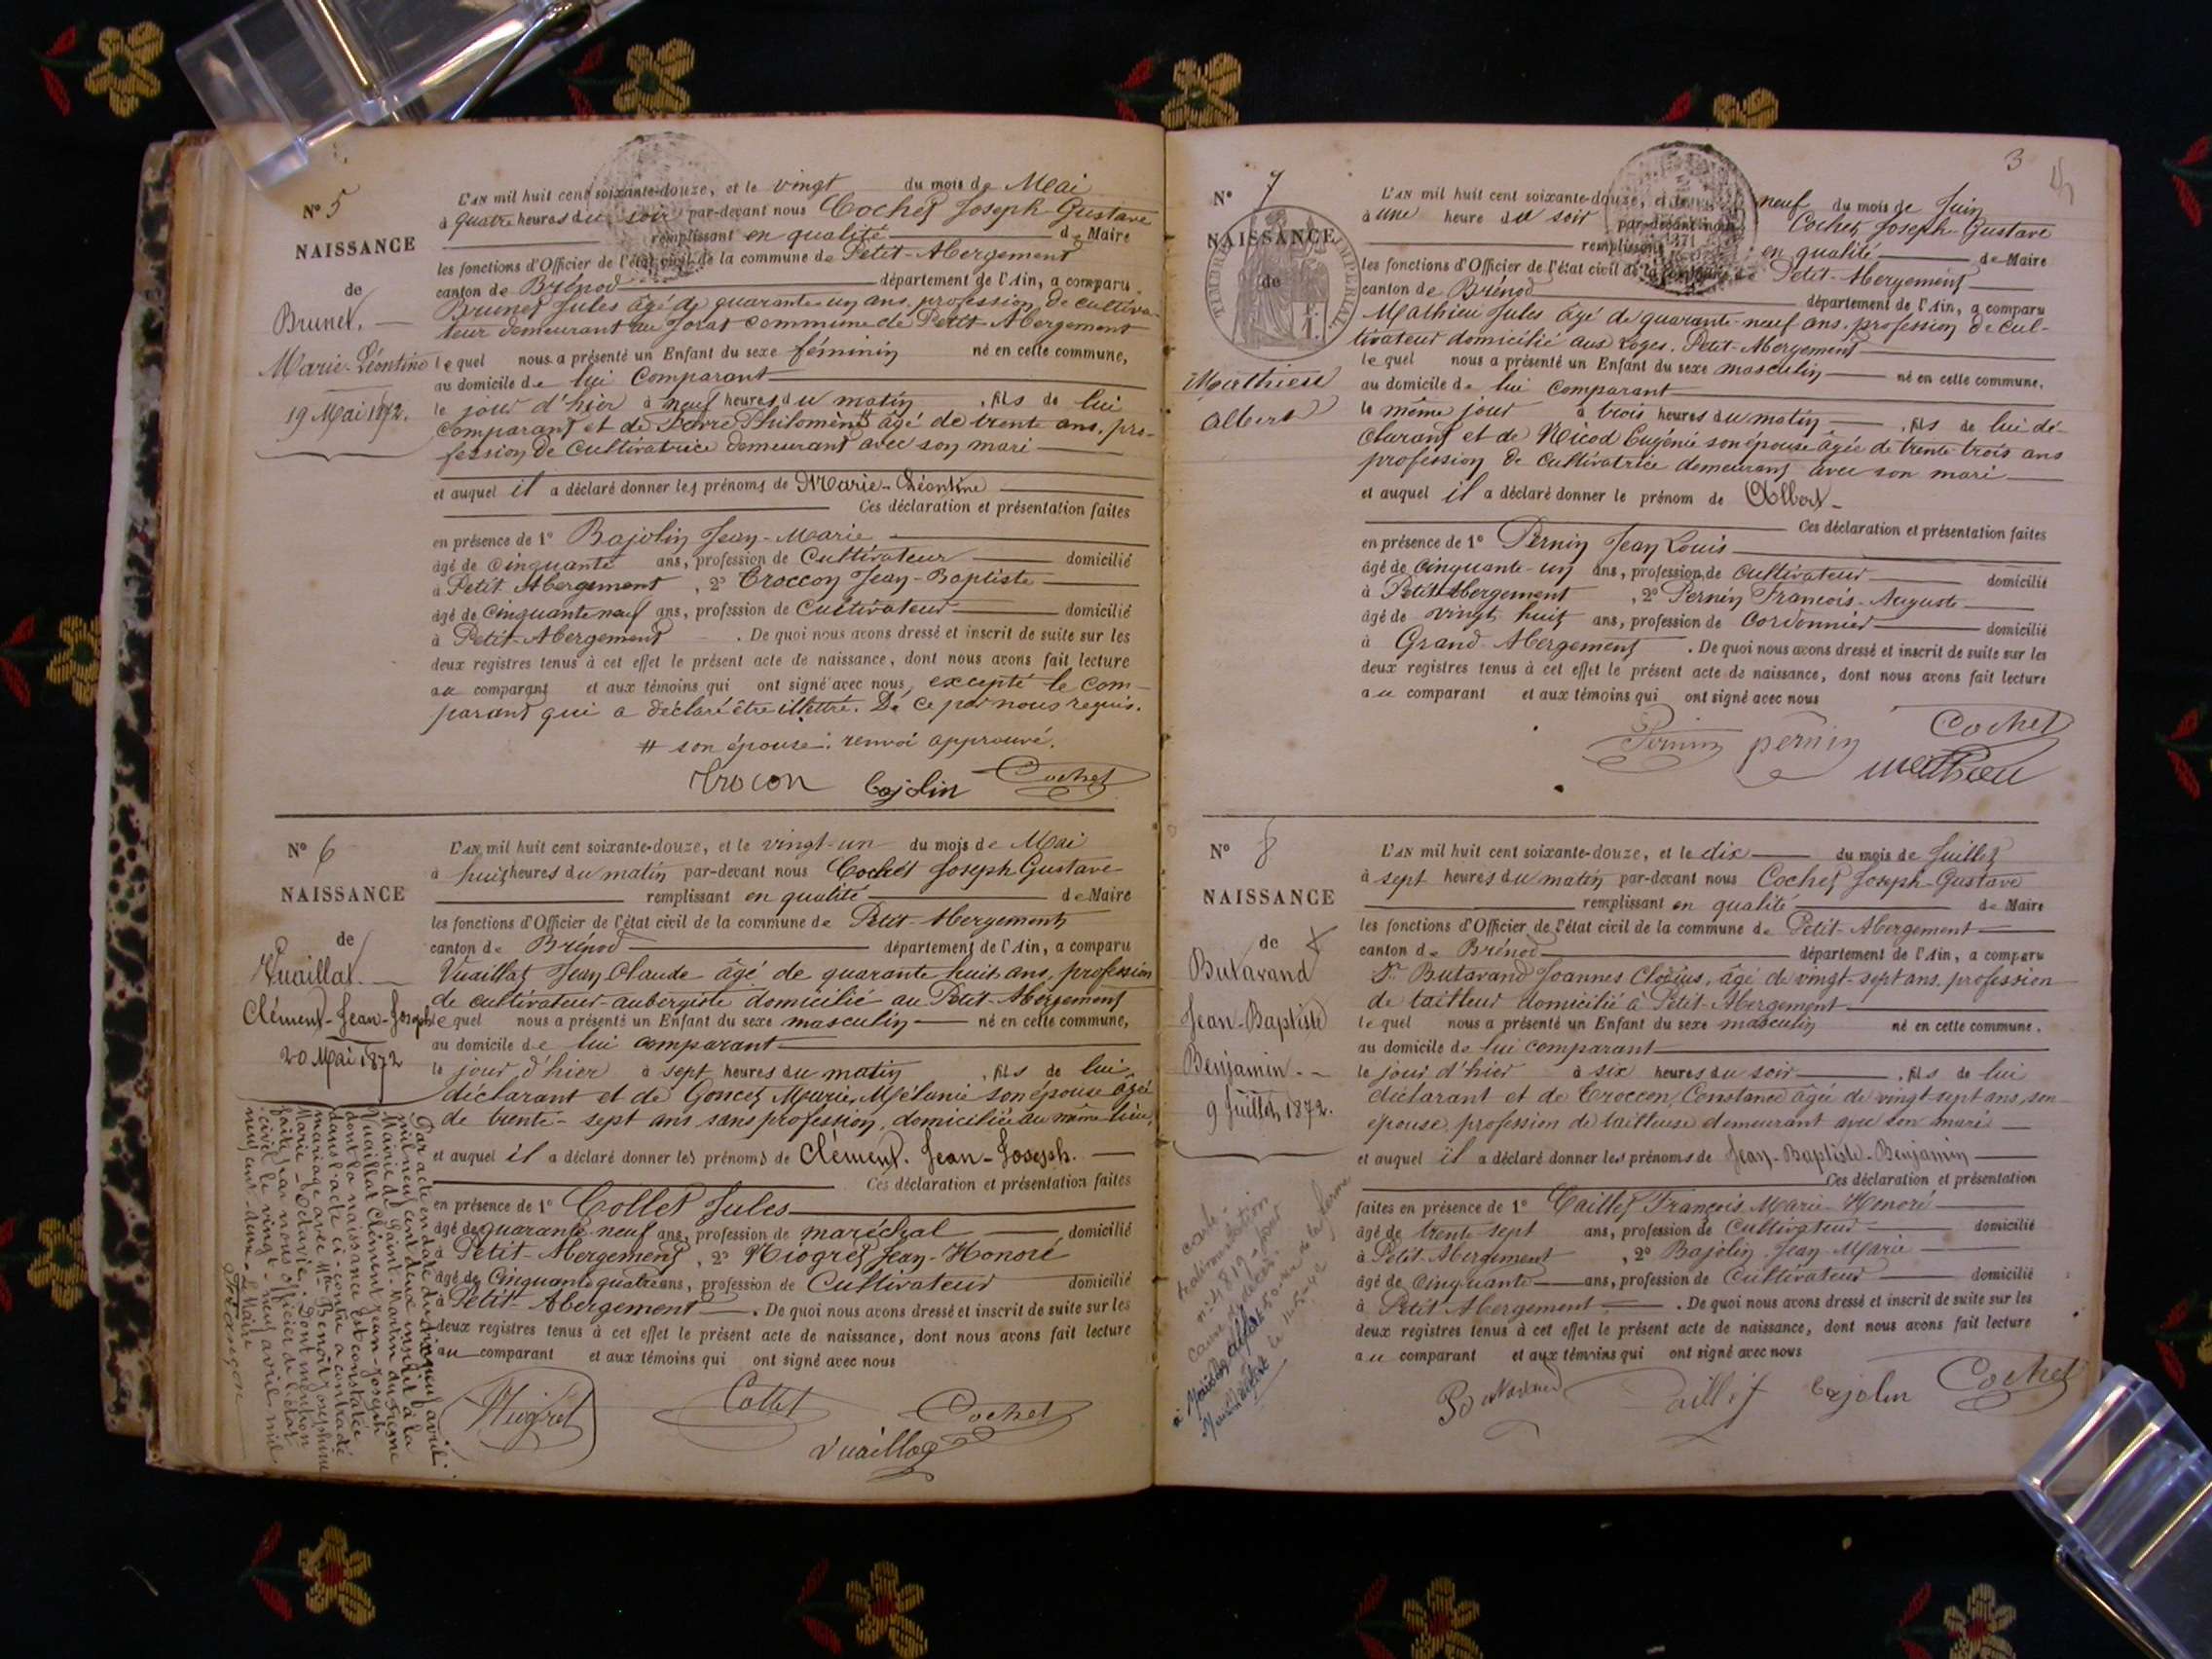 N° 5
NAISSANCE
de
Brunet.
Marie-Léontine
19 Mai 1872.
L'AN mil huit cent soixante-douze, et le vingt du mois de Mai
à quatre heures du soir par-devant nous Cochet Joseph-Gustave
remplissant en qualité de Maire
les fonctions d'Officier de l'état civil de la commune de Petit-Abergement
canton de Brénod département de l'Ain, a comparu
Brunet Jules âgé de quarante un ans, profession de cultiva-
teur demeurant au Jorat commune de Petit-Abergement
lequel nous a présenté un Enfant du sexe féminin né en cette commune,
au domicile de lui Comparant
le jour d'hier à neuf heures du matin, fils de lui
comparant et de Favre Philomène # âgé de trente ans, pro-
fession de Cultivatrice demeurant avec son mari
et auquel il a déclaré donner les prénoms de Marie-Léontine
Ces déclaration et présentation faites
en présence de 1° Bajolin Jean-Marie
âgé de Cinquante ans, profession de Cultivateur domicilié
à Petit Abergement, 2° Croccon Jean-Baptiste
âgé de Cinquante neuf ans, profession de Cultivateur domicilié
à Petit-Abergement. De quoi nous avons dressé et inscrit de suite sur les
deux registres tenus à cet effet le présent acte de naissance, dont nous avons fait lecture
au comparant et aux témoins qui ont signé avec nous, excepté le com-
parant qui a déclaré être illettré. De ce par nous requis.
# son épouse: renvoi approuvé.
Crocon Bajolin Cochet
N° 6
NAISSANCE
de
Vuaillat.
Clément-Jean-Joseph
20 Mai 1872
L'AN mil huit cent soixante-douze, et le vingt-un du mois de Mai
à huit heures du matin par-devant nous Cochet Joseph Gustave
remplissant en qualité de Maire
les fonctions d'Officier de l'état civil de la commune de Petit-Abergement
canton de Brénod département de l'Ain, a comparu
Vuaillat Jean Claude âgé de quarante huit ans, profession
de cultivateur-aubergiste domicilié au Petit-Abergement
lequel nous a présenté un Enfant du sexe masculin né en cette commune,
au domicile de lui comparant
le jour d'hier à sept heures du matin, fils de lui
déclarant et de Goncet Marie Mélanie son épouse âgée
de trente-sept ans sans profession, domiciliée au même lieu,
et auquel il a déclaré donner les prénoms de Clément-Jean-Joseph.
Ces déclaration et présentation faites
en présence de 1° Collet Jules
âgé de quarante neuf ans, profession de maréchal domicilié
à Petit Abergement, 2° Niogret Jean-Honoré
âgé de Cinquante quatre ans, profession de Cultivateur domicilié
à Petit-Abergement. De quoi nous avons dressé et inscrit de suite sur les
deux registres tenus à cet effet le présent acte de naissance, dont nous avons fait lecture
au comparant et aux témoins qui ont signé avec nous
Niogret Collet Cochet
Vuaillat
Par acte en date du dix neuf avril
mil neuf cent deux inscrit à la
Mairie de Saint-Martin du Fresne
Vuaillat Clément Jean-Joseph
dont la naissance est constatée
dans l'acte ci-contre a contracté
mariage avec Mlle Benoit Joséphine
Marie-Octavie. Dont mention
faite par nous officier de l'état
civil le vingt-neuf avril mil
neuf cent-deux - Le Maire
N° 7
NAISSANCE
de
TIMBRE IMPERIAL
Mathieu
Albert
3
L'AN mil huit cent soixante-douze, et le neuf du mois de Juin
à une heure du soir par-devant nous Cochet Joseph-Gustave
remplissant en qualité de Maire
les fonctions d'Officier de l'état civil de la commune de Petit-Abergement
canton de Brénod département de l'Ain, a comparu
Mathieu Jules âgé de quarante-neuf ans, profession de cul-
tivateur domicilié aux Loges. Petit-Abergement
lequel nous a présenté un Enfant du sexe masculin né en cette commune,
au domicile de lui comparant
le même jour à trois heures du matin, fils de lui dé-
clarant et de Nicod Eugénie son épouse âgée de trente trois ans
profession de Cultivatrice demeurant avec son mari
et auquel il a déclaré donner le prénom de Albert
Ces déclaration et présentation faites
en présence de 1° Pernin Jean Louis
âgé de cinquante-un ans, profession de Cultivateur domicilié
à Petit Abergement, 2° Pernin François-Auguste
âgé de vingt huit ans, profession de Cordonnier domicilié
à Grand-Abergement. De quoi nous avons dressé et inscrit de suite sur les
deux registres tenus à cet effet le présent acte de naissance, dont nous avons fait lecture
au comparant et aux témoins qui ont signé avec nous
Pernin pernin Cochet
mathieu
N° 8
NAISSANCE
de
Butavand
Jean-Baptiste
Benjamin
9 Juillet 1872.
L'AN mil huit cent soixante-douze, et le dix du mois de Juillet
à sept heures du matin par-devant nous Cochet Joseph-Gustave
remplissant en qualité de Maire
les fonctions d'Officier de l'état civil de la commune de Petit-Abergement
canton de Brénod département de l'Ain, a comparu
Sr. Butavand Joannes Clodius, âgé de vingt-sept ans, profession
de tailleur domicilié à Petit-Abergement
lequel nous a présenté un Enfant du sexe masculin né en cette commune,
au domicile de lui comparant
le jour d'hier à six heures du soir, fils de lui
déclarant et de Croccon Constance âgée de vingt-sept ans, son
épouse, profession de tailleuse demeurant avec son mari
et auquel il a déclaré donner les prénoms de Jean-Baptiste-Benjamin
Ces déclaration et présentation
faites en présence de 1° Caillet François Marie-Honoré
âgé de trente-sept ans, profession de Cultivateur domicilié
à Petit-Abergement, 2° Bajolin Jean-Marie
âgé de Cinquante ans, profession de Cultivateur domicilié
à Petit Abergement. De quoi nous avons dressé et inscrit de suite sur les
deux registres tenus à cet effet le présent acte de naissance, dont nous avons fait lecture
au comparant et aux témoins qui ont signé avec nous
Butavand Caillet Bajolin Cochet
carte
d'alimentation